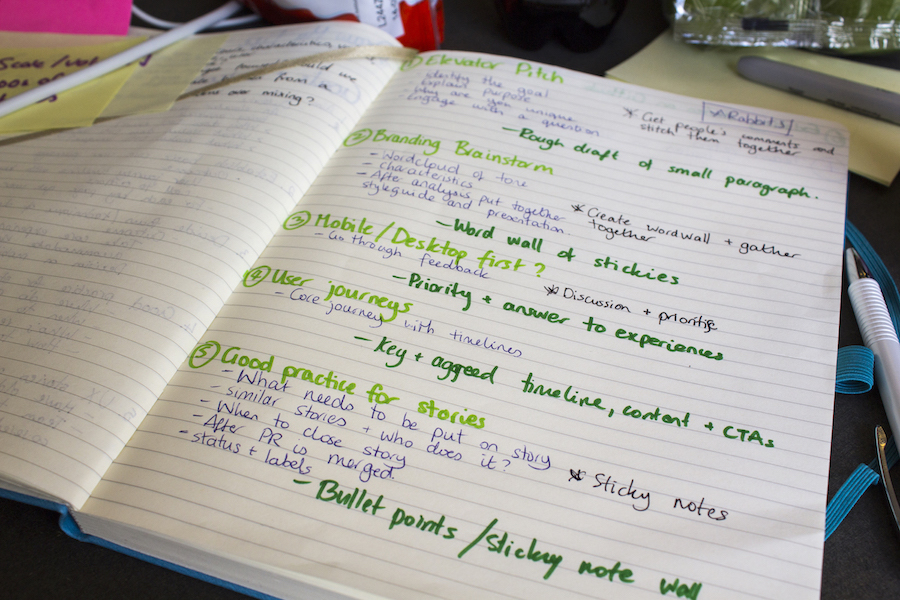 Scale/
for
characteristics
would we
from a
over mixing?
① Elevator Pitch
Identify the goal
Explains purpose
Why are you unique
Engage with a question
* Rabbits
* Get people's comments and
stitch them together
- Rough draft of small paragraph.
② Branding Brainstorm
- Wordcloud of tone
characteristics
- After analysis put together
styleguide and presentation.
* Create wordwall + gather
together
- Word wall of stickies
③ Mobile/Desktop first?
- Go through feedback
* Discussion + prioritise
- Priority + answer to experiences
④ User journeys
- Core journey with timelines
- Key + aggeed timeline, content + CTAs
⑤ Good practice for stories
- What needs to be put on story
- similar stories + who does it?
- When to close story
- After PR is merged.
- status + labels
* Sticky notes
- Bullet points/sticky note wall